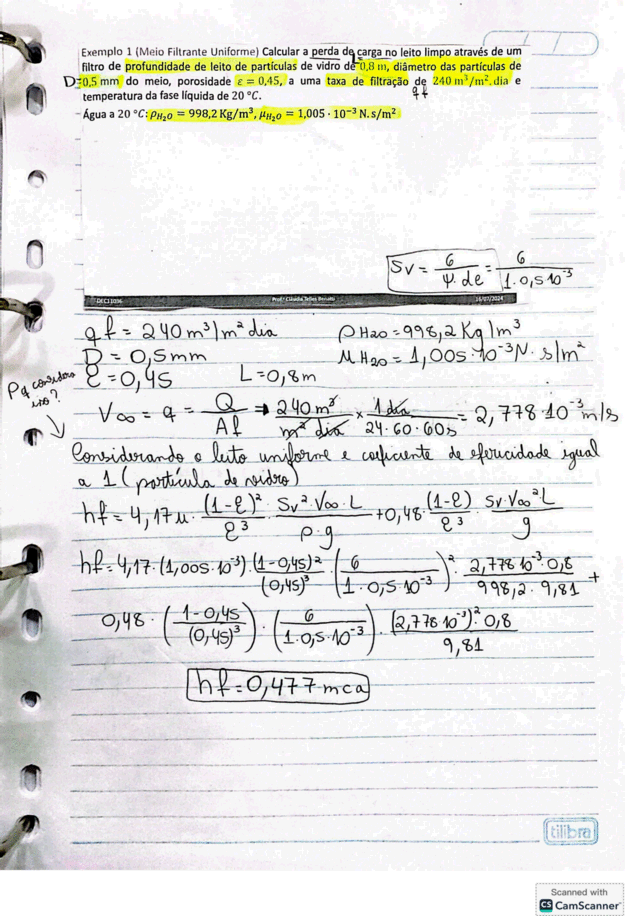 Exemplo 1 (Meio Filtrante Uniforme) Calcular a perda de carga no leito limpo através de um
filtro de profundidade de leito de partículas de vidro de 0,8 m, diâmetro das partículas de
D= 0,5 mm do meio, porosidade ε = 0,45, a uma taxa de filtração de 240 m³/m².dia e
qf
temperatura da fase líquida de 20 °C.
Água a 20 °C: ρH₂O = 998,2 Kg/m³, μH₂O = 1,005 · 10⁻³ N.s/m²
Sv = 6/(Ψ.de) = 6/(1.0,5 10⁻³)
Prof.ª Cláudia Telles Benatti
16/07/2024
qf = 240 m³/m² dia
ρH2O = 998,2 Kg/m³
D = 0,5 mm
μH2O = 1,005 · 10⁻³ N · s/m²
ε = 0,45
L = 0,8 m
Pq considera isso?
V∞ = q = Q/Af → 240 m³/m² dia × 1 dia/24·60·60s = 2,778·10⁻³ m/s
Considerando o leito uniforme e coeficiente de efericidade igual
a 1 (partícula de vidro)
hf = 4,17 μ · (1-ε)²/ε³ · Sv²·V∞·L/ρ·g + 0,48 · (1-ε)/ε³ · Sv·V∞²L/g
hf = 4,17 · (1,005·10⁻³) · (1-0,45)²/(0,45)³ · (6/1·0,5·10⁻³)² · 2,778 10⁻³·0,8/998,2·9,81 +
0,48 · (1-0,45/(0,45)³) · (6/1·0,5·10⁻³) · (2,778 10⁻³)²·0,8/9,81
hf = 0,477 mca
tilibra
Scanned with
CS CamScanner